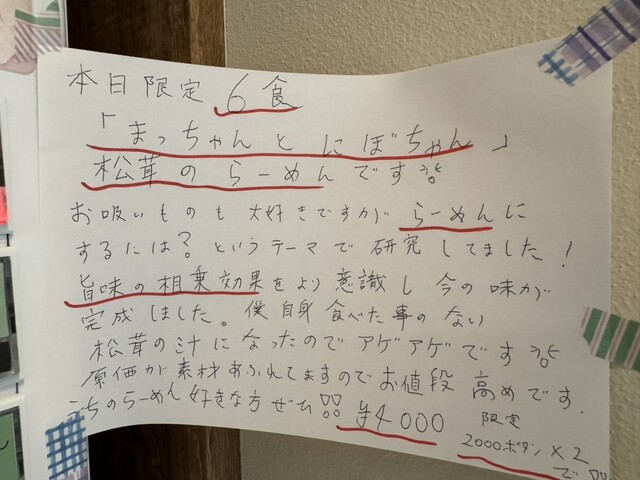 本日限定 6食
「まっちゃんとにぼちゃん」
松茸のらーめんです
お吸いものも大好きですがらーめんに
するには?というテーマで研究してました!
旨味の相乗効果をより意識し今の味が
完成しました。僕自身食べた事のない
松茸の汁になったのでアゲアゲです
原価が素材あふれてますのでお値段高めです.
うちのらーめん好きな方ぜひ!! ¥4000
限定
2000ボタン×2
で!!